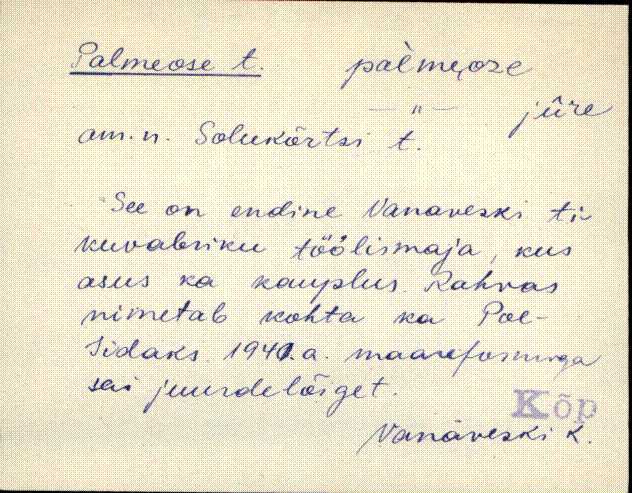 Palmeose t. palmeoze
— " — jüre
am.n. Solukõrtsi t.
See on endine Vanaveski ti-
kuvabriku töölismaja, kus
asus ka kauplus. Rahvas
nimetab kohta ka Poe-
Sidaks. 1941.a. maareformiga
sai juurdelõiget.
Kõp
Vanaveski k.